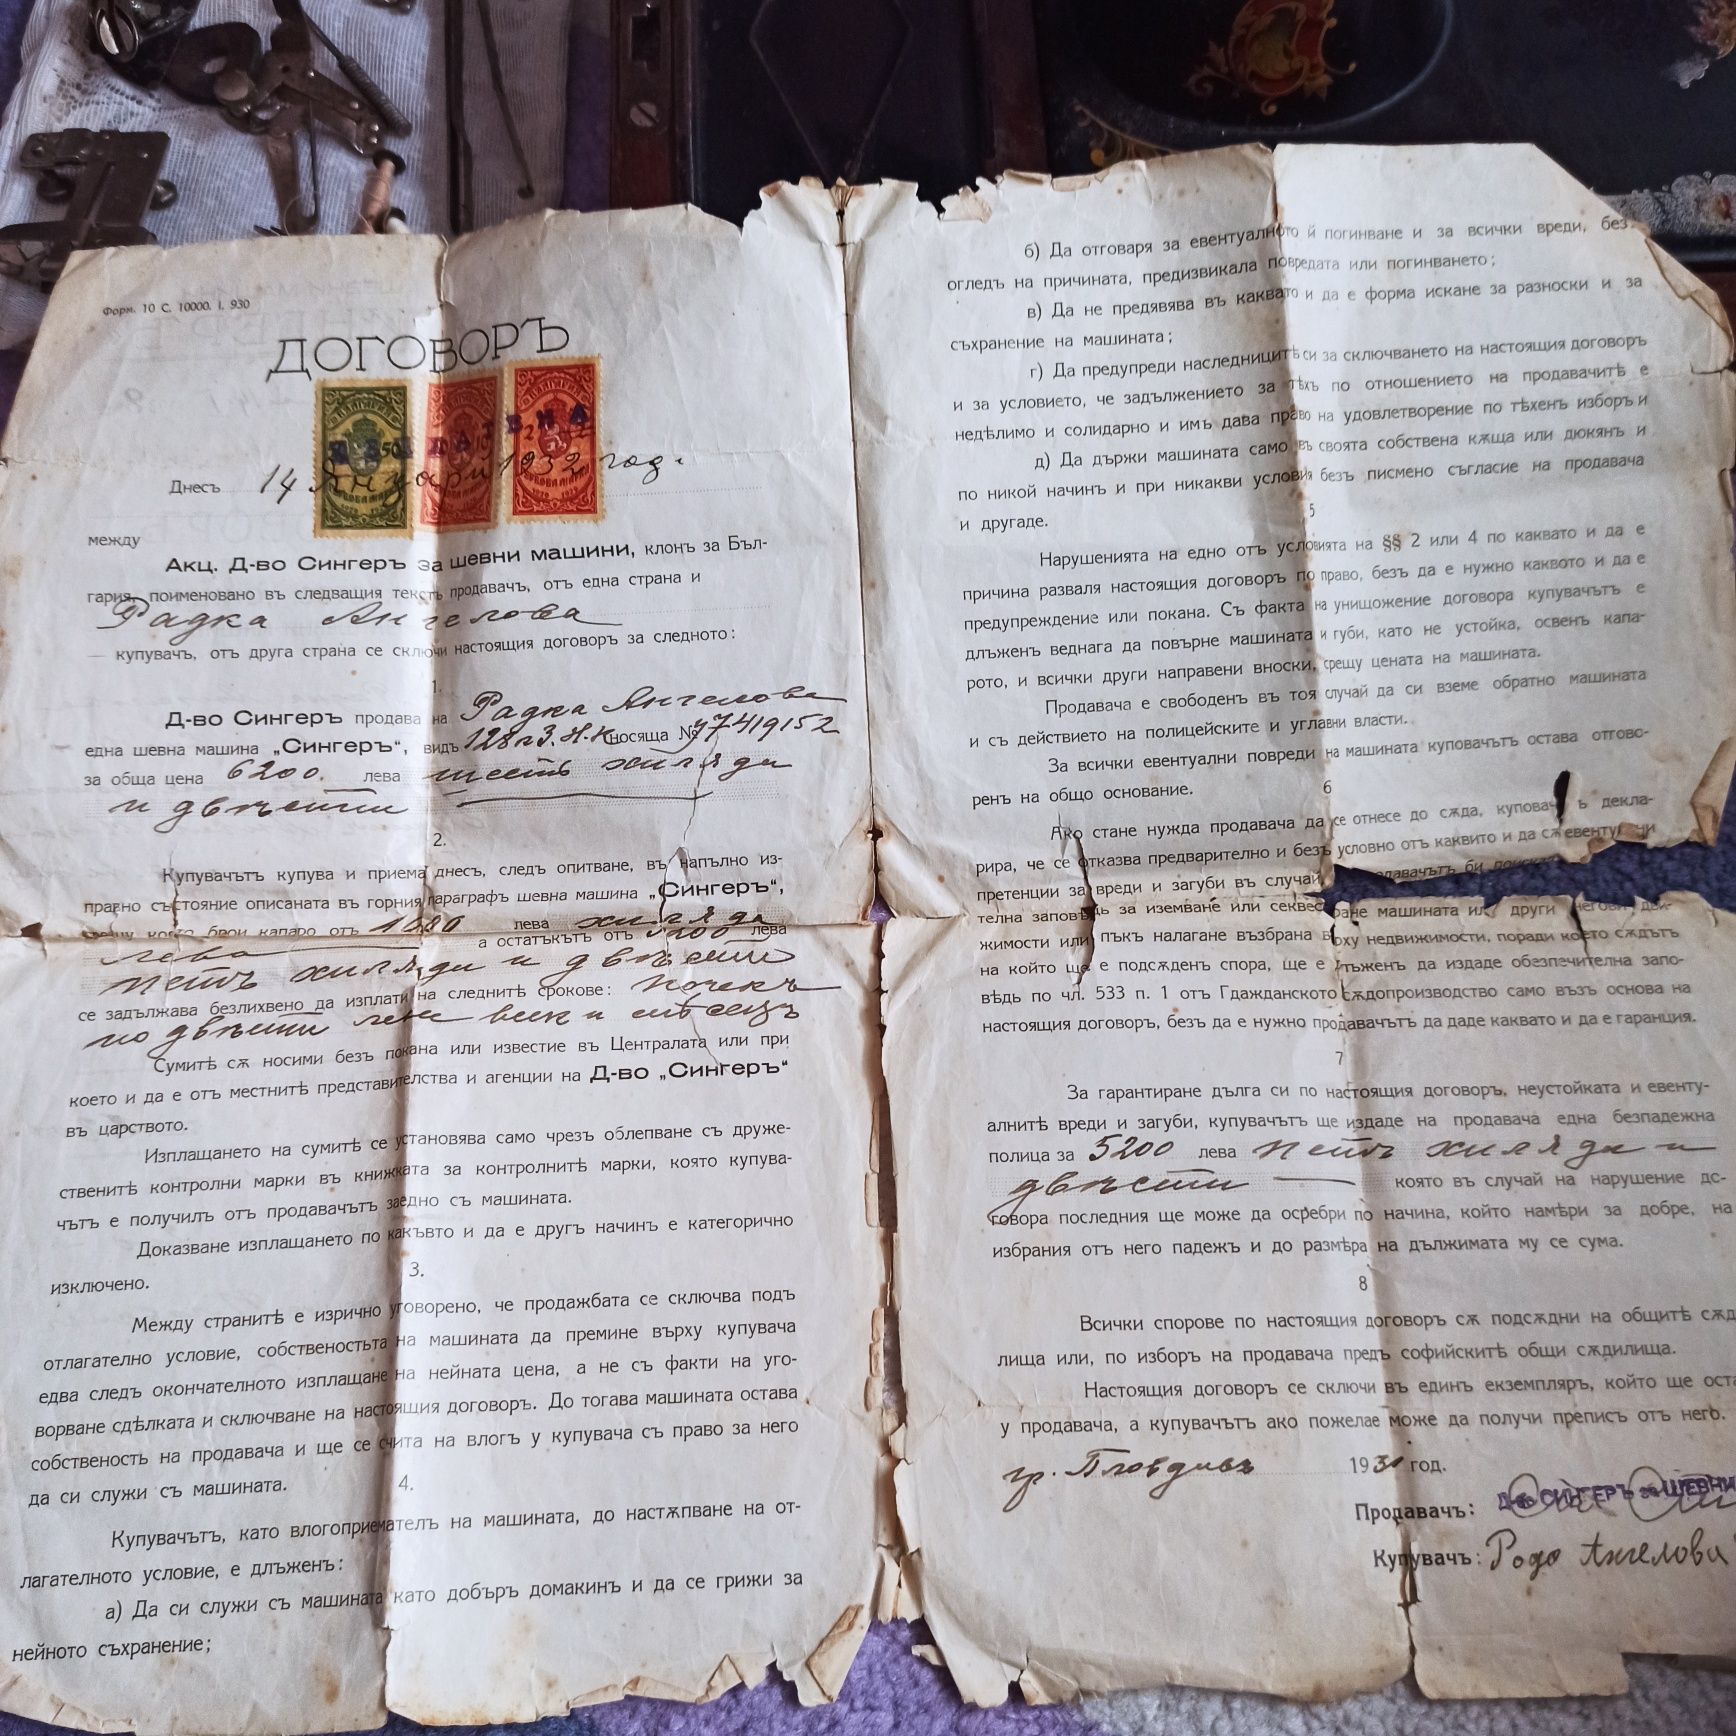 Форм. 10 С. 10000. I. 930
ДОГОВОРЪ
БЪЛГАРИЯ
БЪЛГАРИЯ
БЪЛГАРИЯ
50
Днесъ 14 Януари 1932 год.
между
Акц. Д-во Сингеръ за шевни машини, клонъ за Бъл-
гария, поименовано въ следващия текстъ продавачъ, отъ една страна и
Радка Ангелова
— купувачъ, отъ друга страна се сключи настоящия договоръ за следното:
1.
Д-во Сингеръ продава на Радка Ангелова
една шевна машина „Сингеръ“, видъ носяща № У7419152
за обща цена 6200. лева шесть хиляди
и двѣсти
2.
Купувачътъ купува и приема днесъ, следъ опитване, въ напълно из-
правно състояние описаната въ горния параграфъ шевна машина „Сингеръ“,
срещу която брои капаро отъ 1000 лева хиляди
лева а остатъкътъ отъ 5200 лева
петь хиляди и двѣсти
се задължава безлихвено да изплати на следнитѣ срокове:
по двѣсти лева всеки месецъ
Сумитѣ сѫ носими безъ покана или известие въ Централата или при
което и да е отъ местнитѣ представителства и агенции на Д-во „Сингеръ“
въ царството.
Изплащането на сумитѣ се установява само чрезъ облепване съ друже-
ственитѣ контролни марки въ книжката за контролнитѣ марки, която купува-
чътъ е получилъ отъ продавачътъ заедно съ машината.
Доказване изплащането по какъвто и да е другъ начинъ е категорично
изключено.
3.
Между странитѣ е изрично уговорено, че продажбата се сключва подъ
отлагателно условие, собствеността на машината да премине върху купувача
едва следъ окончателното изплащане на нейната цена, а не съ факти на уго-
ворване сдѣлката и сключване на настоящия договоръ. До тогава машината остава
собственость на продавача и ще се счита на влогъ у купувача съ право за него
да си служи съ машината.
4.
Купувачътъ, като влогоприемателъ на машината, до настѫпване на от-
лагателното условие, е длъженъ:
а) Да си служи съ машината като добъръ домакинъ и да се грижи за
нейното съхранение;
б) Да отговаря за евентуалното й погинване и за всички вреди, безъ
огледъ на причината, предизвикала повредата или погинването;
в) Да не предявява въ каквато и да е форма искане за разноски и за
съхранение на машината;
г) Да предупреди наследницитѣ си за сключването на настоящия договоръ
и за условието, че задължението за тѣхъ по отношението на продавачитѣ е
недѣлимо и солидарно и имъ дава право на удовлетворение по тѣхенъ изборъ и
д) Да държи машината само въ своята собствена кѫща или дюкянъ и
по никой начинъ и при никакви условия безъ писмено съгласие на продавача
и другаде.
5
Нарушенията на едно отъ условията на §§ 2 или 4 по каквато и да е
причина разваля настоящия договоръ по право, безъ да е нужно каквото и да е
предупреждение или покана. Съ факта на унищожение договора купувачътъ е
длъженъ веднага да повърне машината и губи, като не устойка, освенъ капа-
рото, и всички други направени вноски, срещу цената на машината.
Продавача е свободенъ въ тоя случай да си вземе обратно машината
и съ действието на полицейските и углавни власти.
За всички евентуални повреди на машината куповачътъ остава отгово-
ренъ на общо основание.
6
Ако стане нужда продавача да се отнесе до сѫда, куповачътъ декла-
рира, че се отказва предварително и безъ условно отъ каквито и да сѫ евентуални
претенции за вреди и загуби въ случай продавачътъ би
телна заповѣдь за изземване или секвестиране машината или други негови дви-
жимости или пъкъ налагане възбрана върху недвижимости, поради което сѫдътъ
на който ще е подсѫденъ спора, ще е длъженъ да издаде обезпечителна запо-
вѣдь по чл. 533 п. 1 отъ Гдажданското сѫдопроизводство само възъ основа на
настоящия договоръ, безъ да е нужно продавачътъ да даде каквато и да е гаранция.
7
За гарантиране дълга си по настоящия договоръ, неустойката и евенту-
алнитѣ вреди и загуби, купувачътъ ще издаде на продавача една безпадежна
полица за 5200 лева петь хиляди и
двѣсти която въ случай на нарушение до-
говора последния ще може да осребри по начина, който намѣри за добре, на
избрания отъ него падежъ и до размѣра на дължимата му се сума.
8
Всички спорове по настоящия договоръ сѫ подсѫдни на общитѣ сѫд
лища или, по изборъ на продавача предъ софийскитѣ общи сѫдилища.
Настоящия договоръ се сключи въ единъ екземпляръ, който ще оста
у продавача, а купувачътъ ако пожелае може да получи преписъ отъ него.
гр. Пловдивъ 193 год.
Продавачъ: Д-во СИНГЕРЪ за ШЕВНИ
Купувачъ: Радо Ангелова